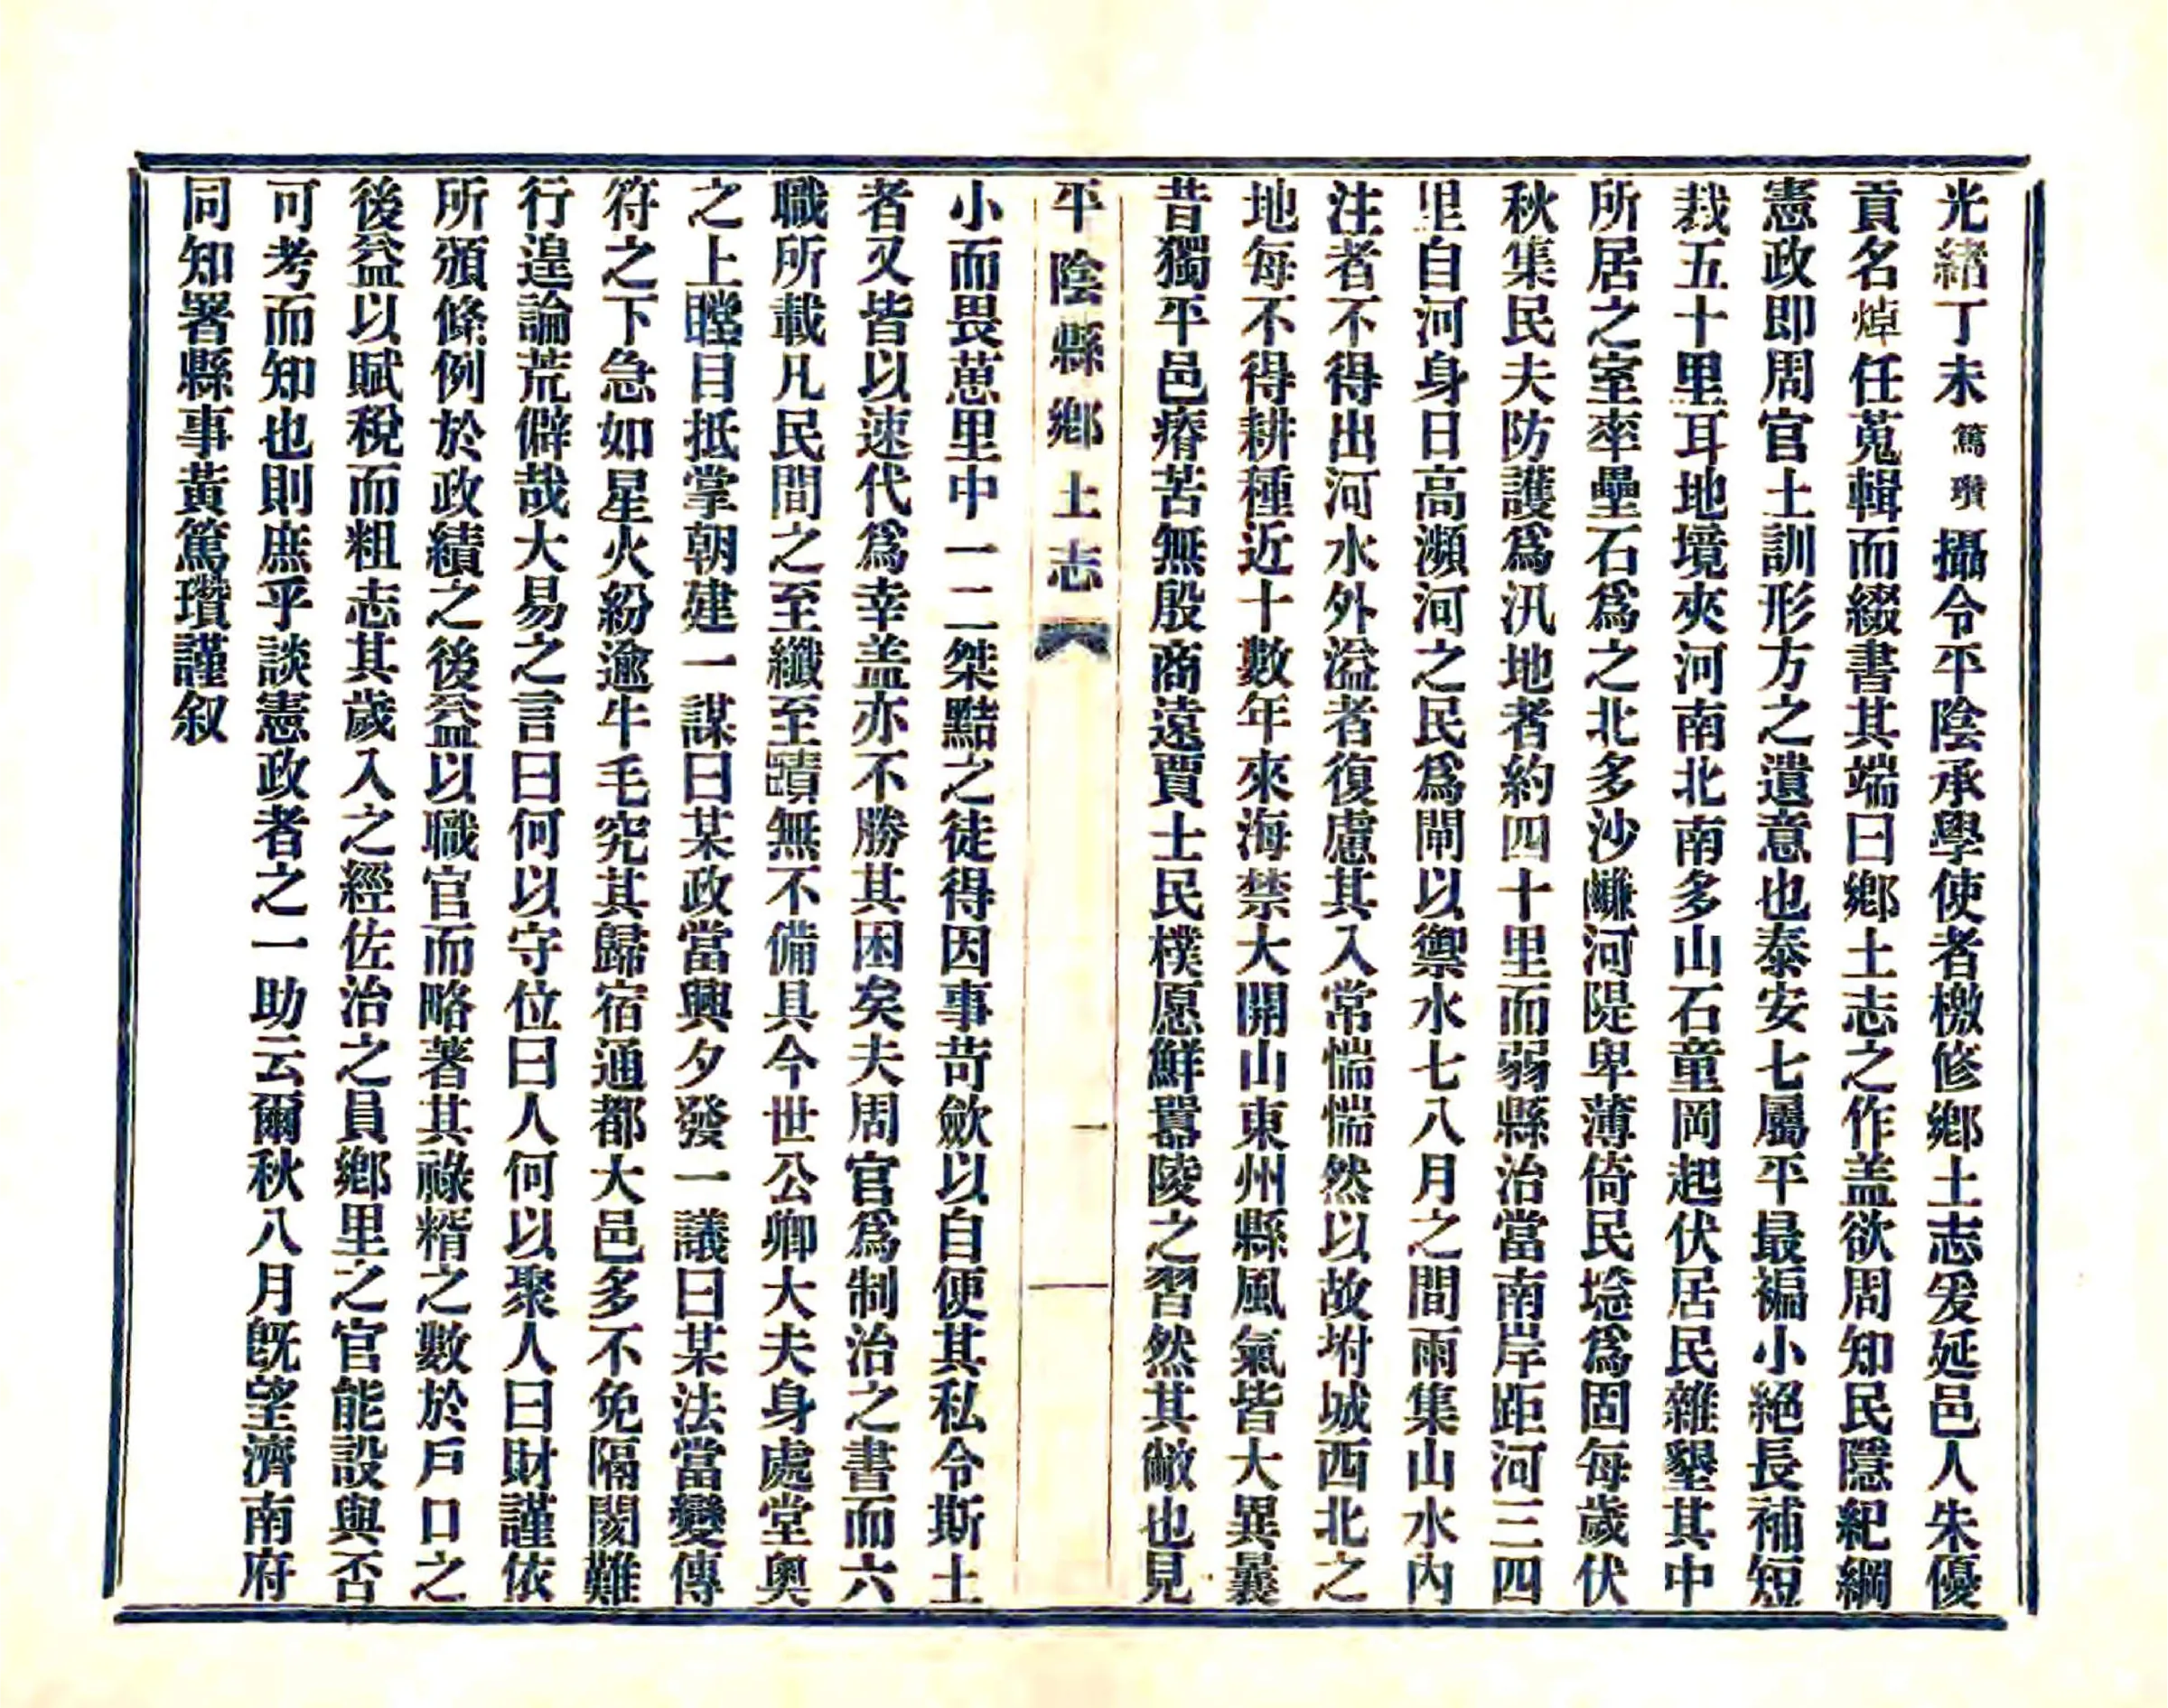 光緒丁未篤瓚攝令平陰承學使者檄修鄉土志爰延邑人朱優
貢名焯任蒐輯而綴書其端曰鄉土志之作盖欲周知民隱紀綱
憲政即周官土訓形方之遺意也泰安七屬平最褊小絕長補短
裁五十里耳地境夾河南北南多山石童岡起伏居民雜墾其中
所居之室率壘石爲之北多沙鹻河隄卑薄倚民埝爲固每歲伏
秋集民夫防護爲汛地者約四十里而弱縣治當南岸距河三四
里自河身日高瀕河之民爲閘以禦水七八月之間雨集山水內
注者不得出河水外溢者復慮其入常惴惴然以故坿城西北之
地每不得耕種近十數年來海禁大開山東州縣風氣皆大異曩
昔獨平邑瘠苦無殷商遠賈士民樸愿鮮囂陵之習然其敝也見
平陰縣鄉土志
一
小而畏葸里中一二桀黠之徒得因事苛歛以自便其私令斯土
者又皆以速代爲幸盖亦不勝其困矣夫周官爲制治之書而六
職所載凡民間之至纖至賾無不備具今世公卿大夫身處堂奧
之上瞠目抵掌朝建一謀曰某政當興夕發一議曰某法當變傳
符之下急如星火紛逾牛毛究其歸宿通都大邑多不免隔閡難
行遑論荒僻哉大易之言曰何以守位曰人何以聚人曰財謹依
所頒條例於政績之後益以職官而略著其祿糈之數於戶口之
後益以賦稅而粗志其歲入之經佐治之員鄉里之官能設與否
可考而知也則庶乎談憲政者之一助云爾秋八月旣望濟南府
同知署縣事黃篤瓚謹叙